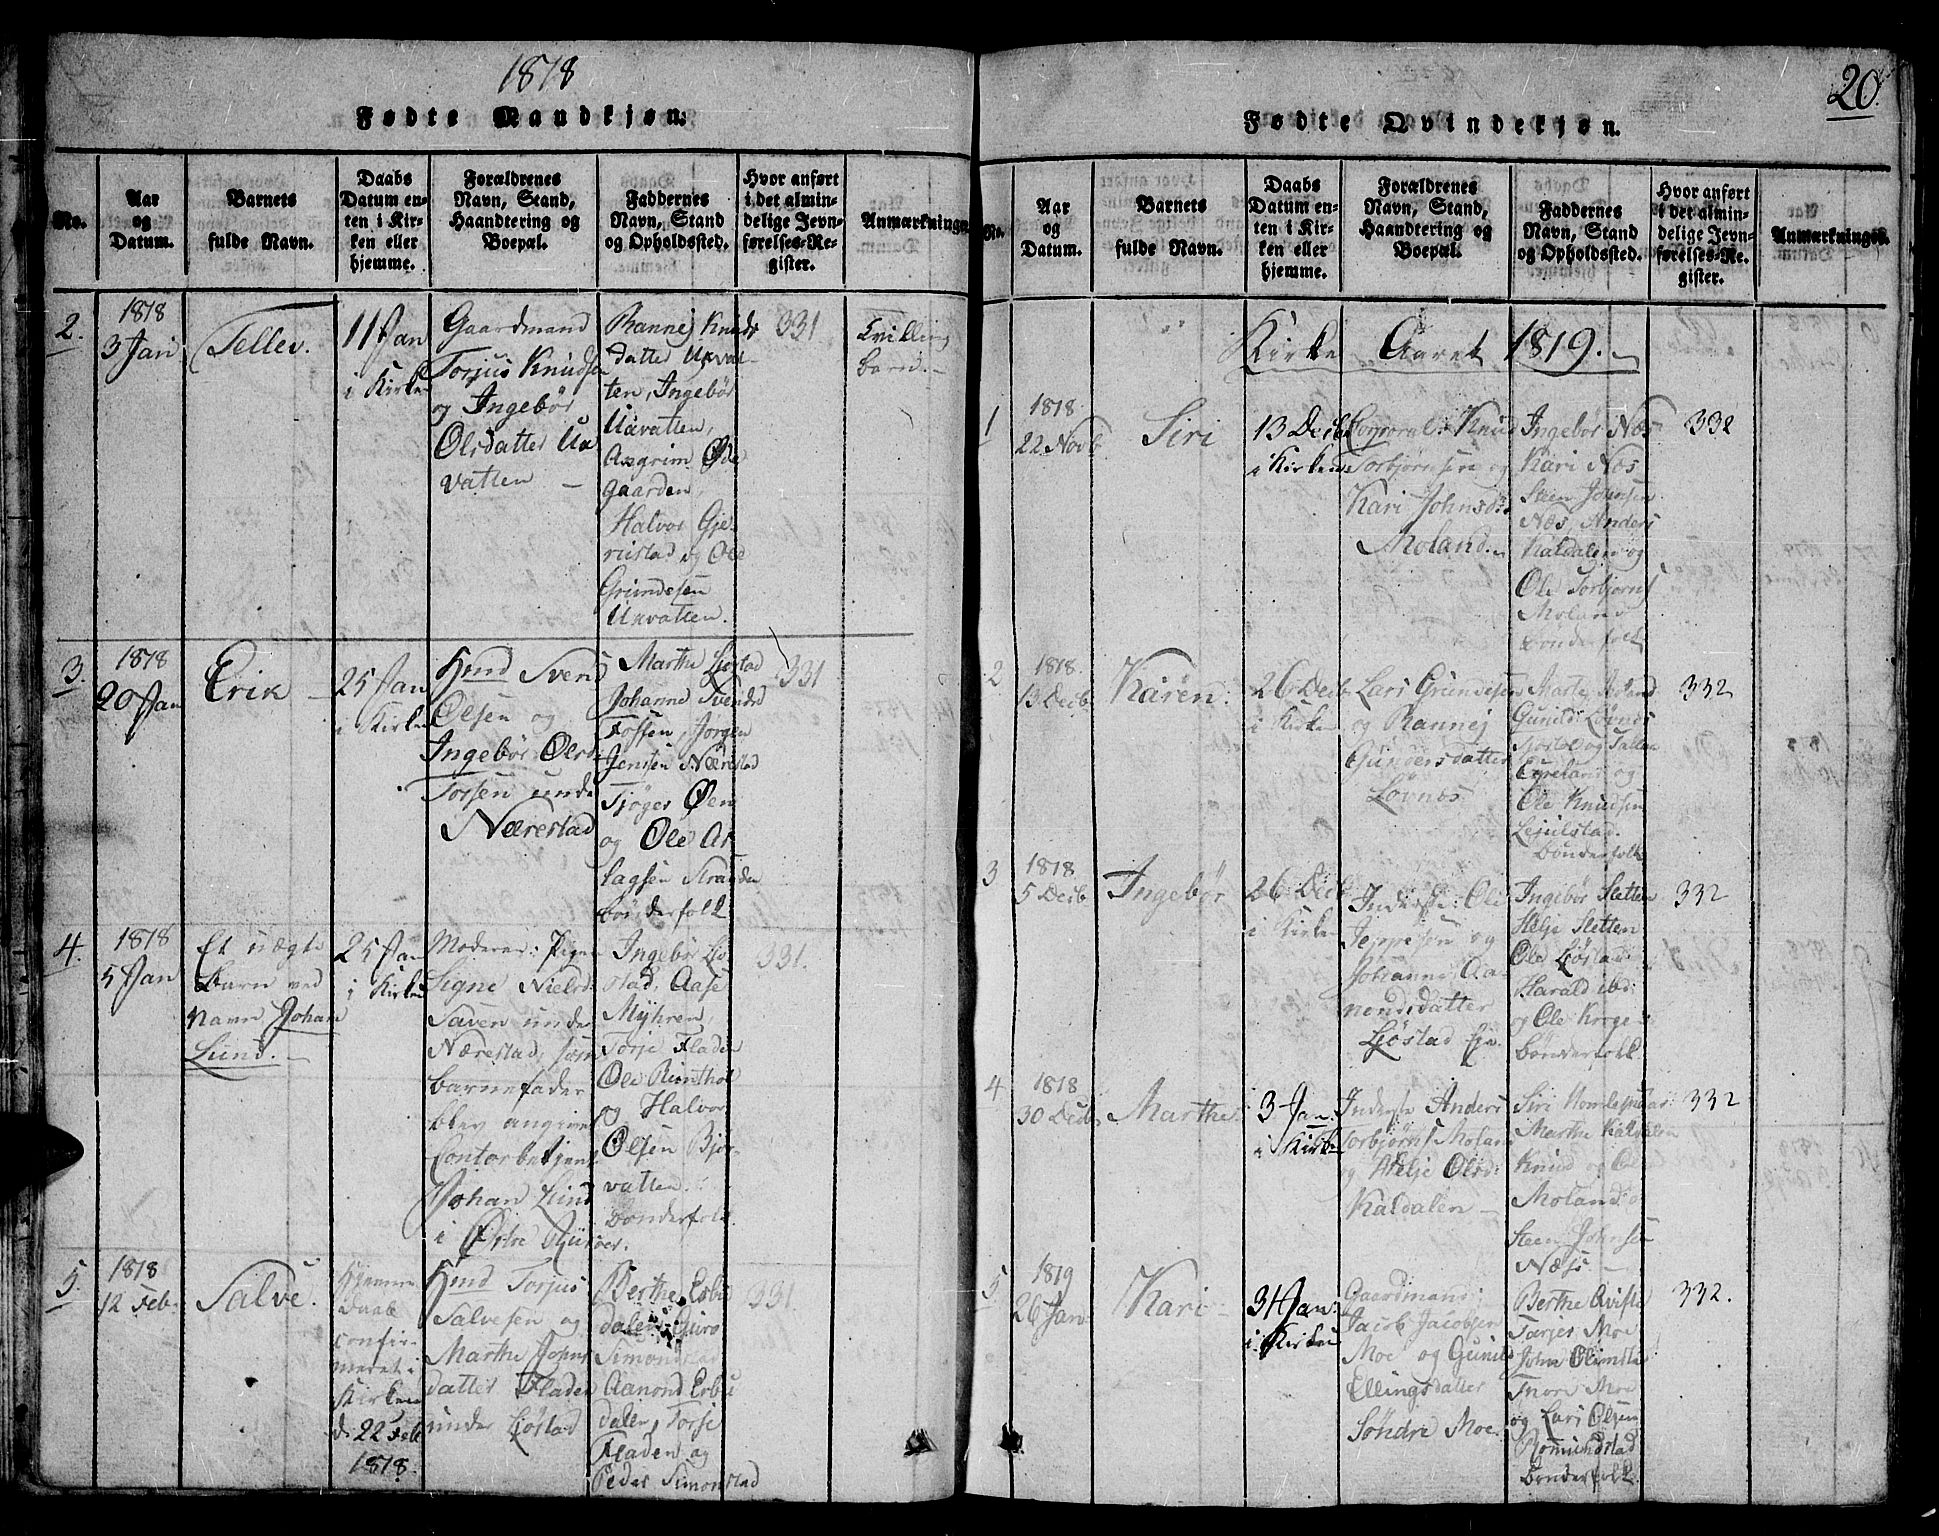 1818
Fødte Mandkjøn.
No.
Aar
og
Datum.
Barnets
fulde Navn.
Daabs
Datum en-
ten i Kir-
ken eller
hjemme.
Forældrenes
Navn, Stand,
Haandtering og
Boepæl.
Faddernes
Navn, Stand
og Opholdssted.
Hvor anført
i det almin-
delige Jevn-
førelses-Re-
gister.
Anmærkninger
2.
1818
3 Jan
Tellev.
11 Jan
i Kirken
Gaardmand
Torjus Knudsen
og Ingebør
Olsdatter Ux
vatten
Rannej Knuds
datter Uxvat-
ten, Ingebør
Uxvatten,
Asgrim Øde
gaarden,
Halvor Gje
rustad og Ole
Grundesen
Uxvatten.
331
Tvilling
barn.
3.
1818
20 Jan
Erik
25 Jan
i Kirken
Hmd Svend
Olsen og
Ingebør Olsd:
Torsen unde
Nærestad
Marthe Ljøstad
Johanne Svendsd
Fossen, Jørgen
Jensen Nærestad
Tjøger Øen
og Ole As
lagsen Stranden
bønderfolk
331
4.
1818
5 Jan
Et uægte
Barn ved
Navn Johan
Lund.
25 Jan
i Kirken
Moderen: Pigen
Signe Nielsd:
Saven under
Nærestad, som
barnefader
blev angivet
Contorbetjent
Johan Lund
i Østre Riisøer.
Ingebør Ljø
stad, Aase
Myhren,
Torje Fladen
Ole Rinthol
og Halvor
Olsen Bjor
vatten.
bonderfolk
331
5.
1818
12 Feb.
Salve.
Hjemme
Daab
confir-
meret i
Kirken
d. 22 Feb
1818.
Hmd Torjus
Salvesen og
Marthe Johns
datter Fladen
under Ljøstad
Berthe Esbu
dalen, Guro
Simonstad
Aanond Esbu
dalen, Torje
Fladen og
Peder Simonstad
331
20.
Fødte Qvindekjøn.
No.
Aar
og
Datum.
Barnets
fulde Navn.
Daabs
Datum en-
ten i Kir-
ken eller
hjemme.
Forældrenes
Navn, Stand,
Haandtering og
Boepæl.
Faddernes
Navn, Stand
og Opholdssted.
Hvor anført
i det almin-
delige Jevn-
førelses-Re-
gister.
Anmærkninger.
Kirke Aaret 1819.
1
1818
22 Novb
Siri
13 Decb
i Kirken
Corporal: Knud
Torbjørnsen og
Kari Johnsd:
Moland.
Ingebør Næs
Kari Næs
Steen Johnsen
Næs, Anders
Kaldalen og
Ole Torbjørns
Moland
bonderfolk
332
2
1818
13 Decb
Karen.
26 Decb
i Kirken
Lars Grundesen
og Rannej
Gundersdatter
Løvnæs
Marte
Gunild Løvnæs
og
Ole Knudsen
Lejulstad.
bønderfolk
332
3
1818
5 Decb
Ingebør
26 Decb
i Kirken
Inderste: Ole
Jeppesen og
Johanne Aa-
nondsdatter
Ljøstad Eje
Ingebør Sletten
Helje Sletten
Ole Ljøstad
Harald ibd:
og Ole Kroge
bønderfolk
332
4
1818
30 Decb
Marthe
3 Jan:
i Kirken
Inderste Anders
Torbjørns Moland
og Helje Olsd:
Kaldalen
Siri
Marthe Kaldalen
Knud og Ole
Moland og
Steen Johnsen
Næss
332
5
1819
26 Jan
Kari
31 Jan:
i Kirken
Gaardmand:
Jacob Jacobsen
Moe og Gunild
Ellingsdatter
Søndre Moe.
Berthe Qviste
Tarjer Moe
John
Thore Moe
og Lars Olsen
Romundstad
bønderfolk
332.